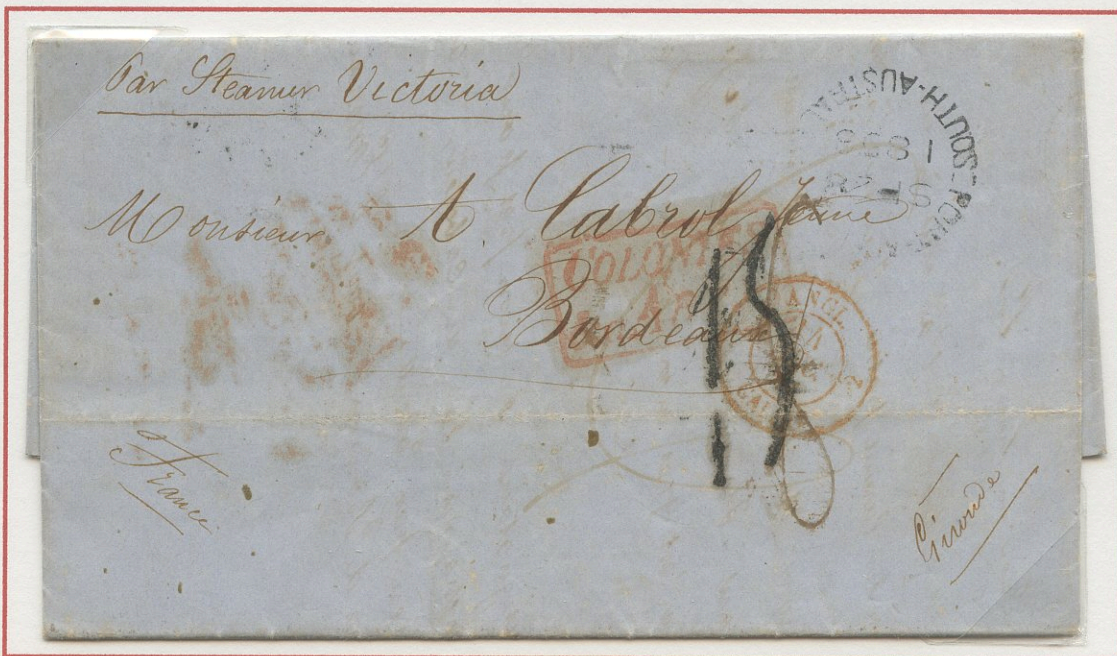 Par Steamer Victoria
SOUTH-AUSTRA
Monsieur A Cabrol Jeune
COLONIES
Bordeaux
15
ANGL.
2
France
Gironde